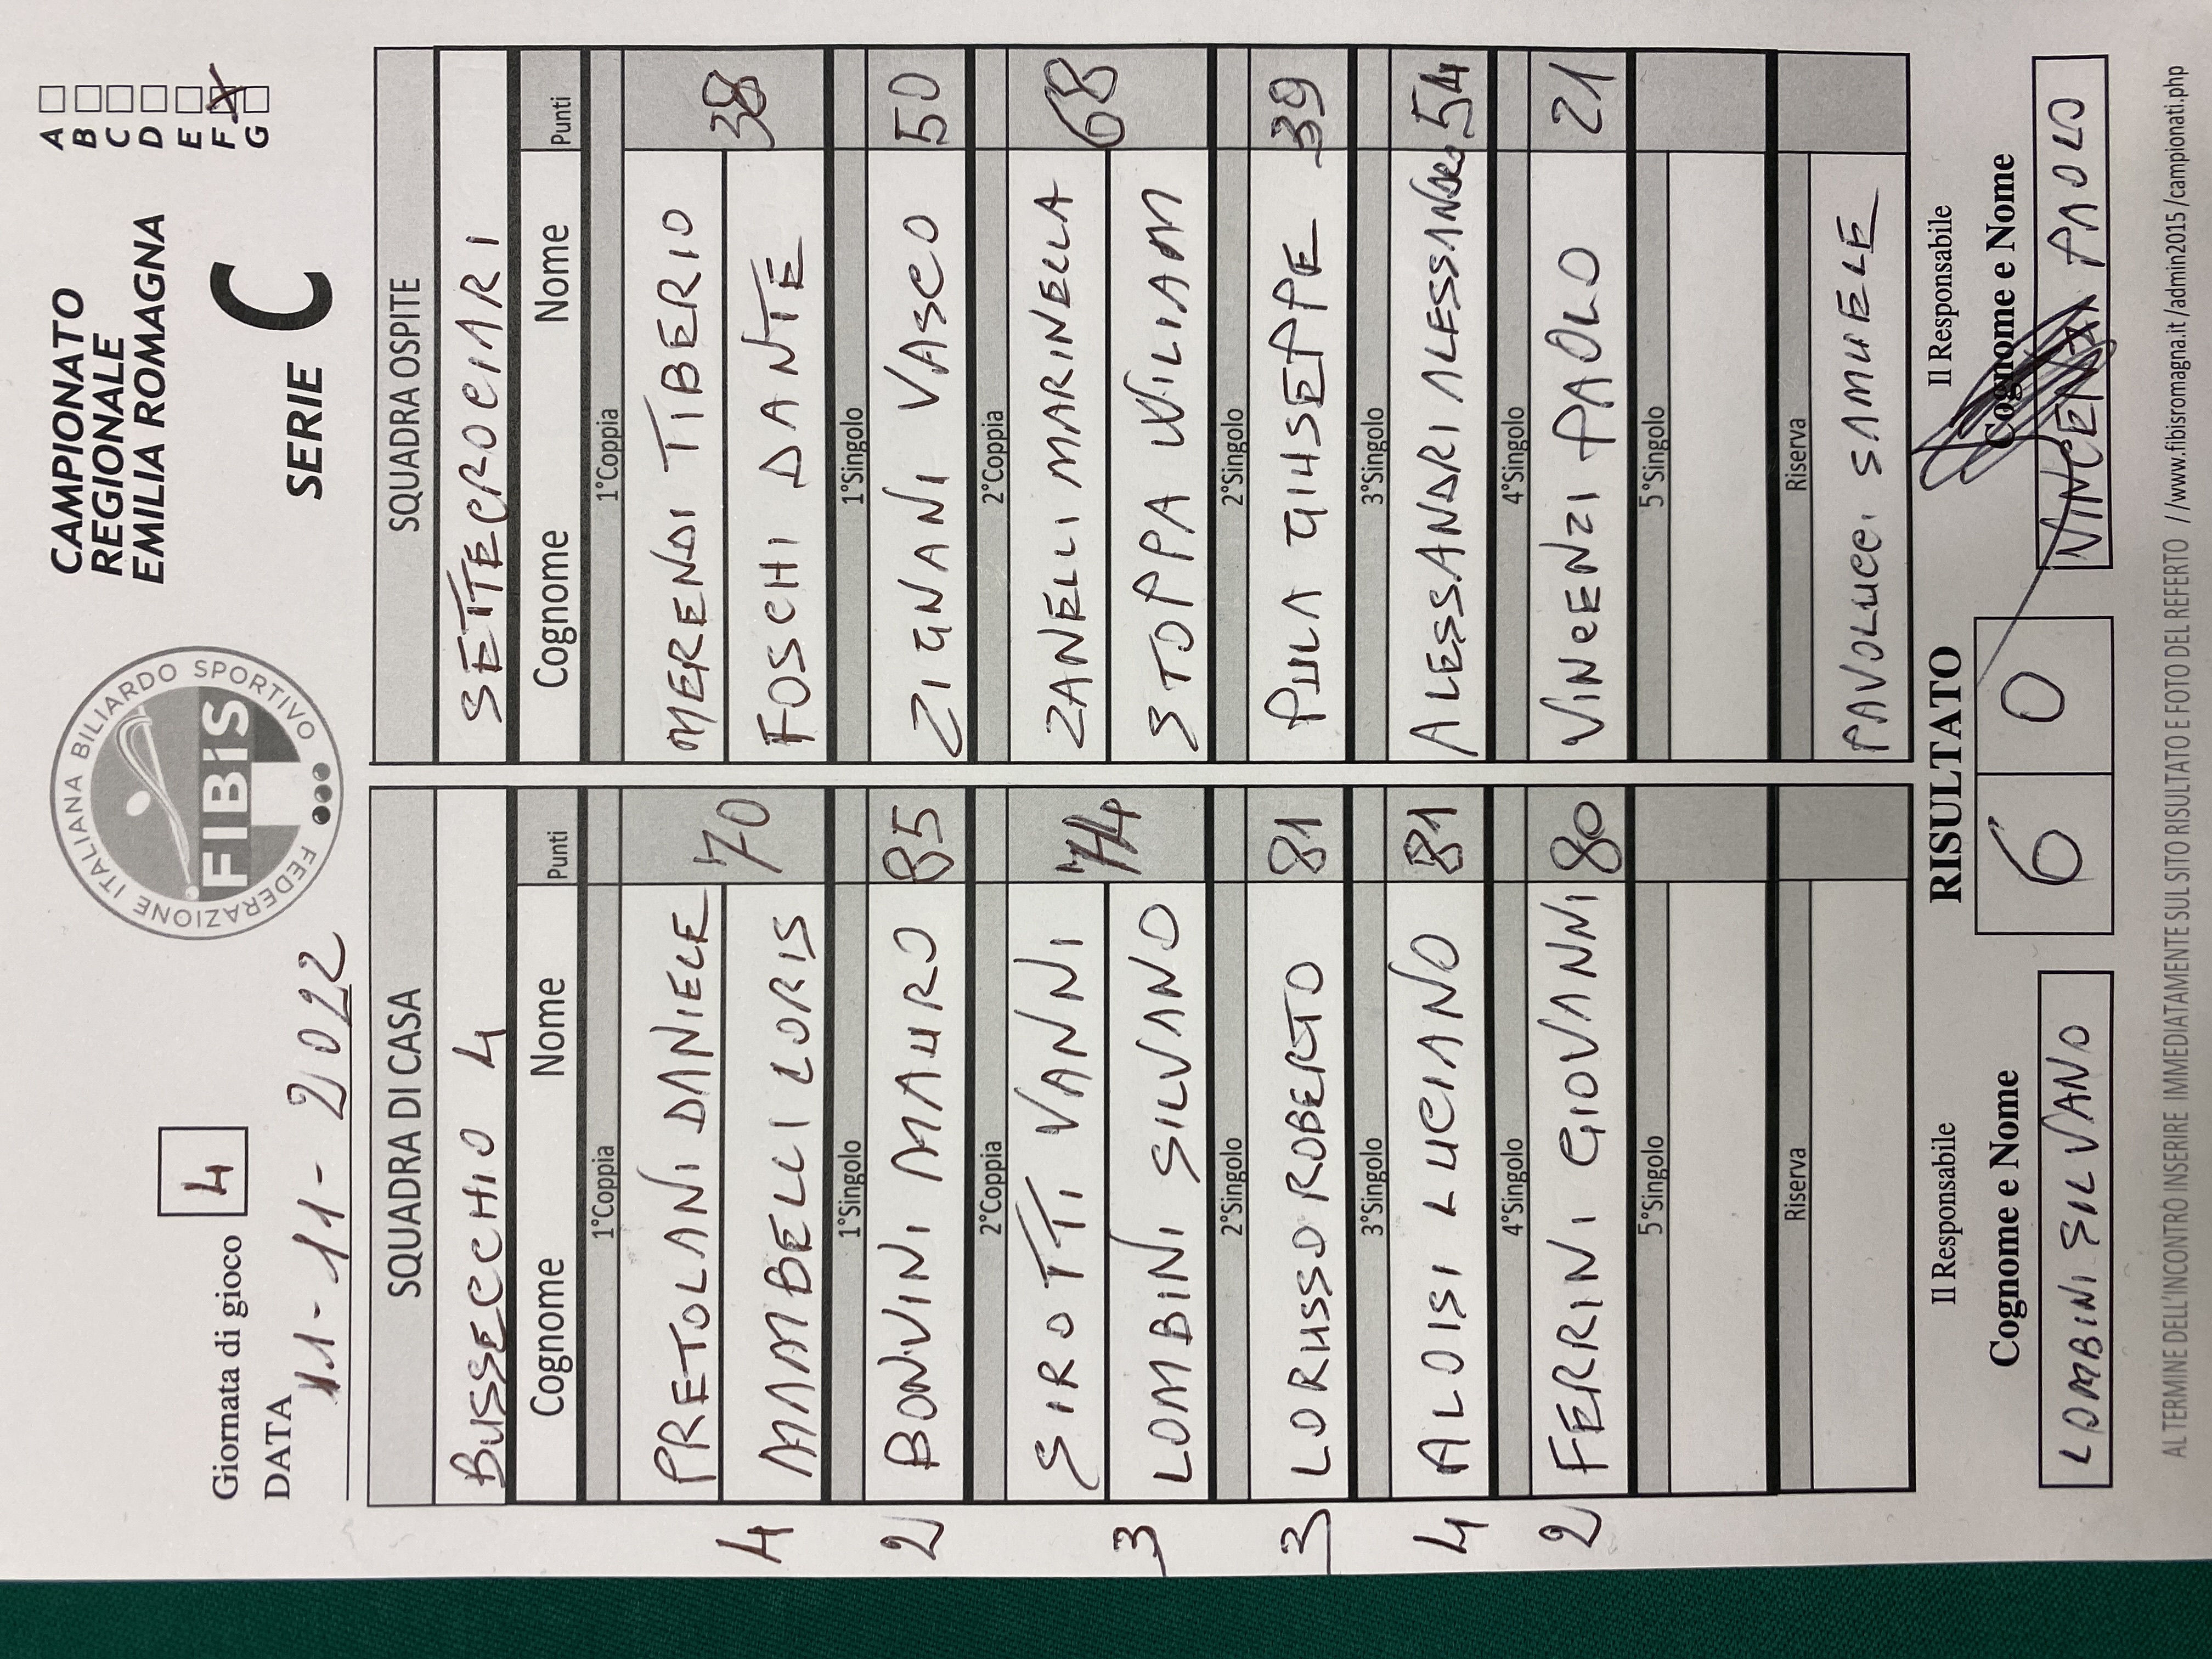 Giornata di gioco 4
DATA 11-11-2022
FEDERAZIONE ITALIANA BILIARDO SPORTIVO
FIBiS
CAMPIONATO
REGIONALE
EMILIA ROMAGNA
SERIE C
A
B
C
D
E
F X
G
SQUADRA DI CASA SQUADRA OSPITE
BUSSECCHIO 4 SETTECROCIARI
Cognome Nome Punti Cognome Nome Punti
1°Coppia 1°Coppia
PRETOLANI DANIELE MERENDI TIBERIO
4 MAMBELLI LORIS 70 FOSCHI DANTE 38
1°Singolo 1°Singolo
2 BONVINI MAURO 85 ZIGNANI VASCO 50
2°Coppia 2°Coppia
SIROTTI VANNI 74 ZANELLI MARINELLA 68
3 LOMBINI SILVANO STOPPA WILIAM
2°Singolo 2°Singolo
3 LORUSSO ROBERTO 81 PULA GIUSEPPE 39
3°Singolo 3°Singolo
4 ALOISI LUCIANO 81 ALESSANDRI ALESSANDRO 54
4°Singolo 4°Singolo
2 FERRINI GIOVANNI 80 VINCENZI PAOLO 21
5°Singolo 5°Singolo
Riserva Riserva
PAVOLUCCI SAMUELE
Il Responsabile RISULTATO Il Responsabile
Cognome e Nome Cognome e Nome
LOMBINI SILVANO 6 0 VINCENZI PAOLO
AL TERMINE DELL'INCONTRO INSERIRE IMMEDIATAMENTE SUL SITO RISULTATO E FOTO DEL REFERTO //www.fibisromagna.it /admin2015 /campionati.php